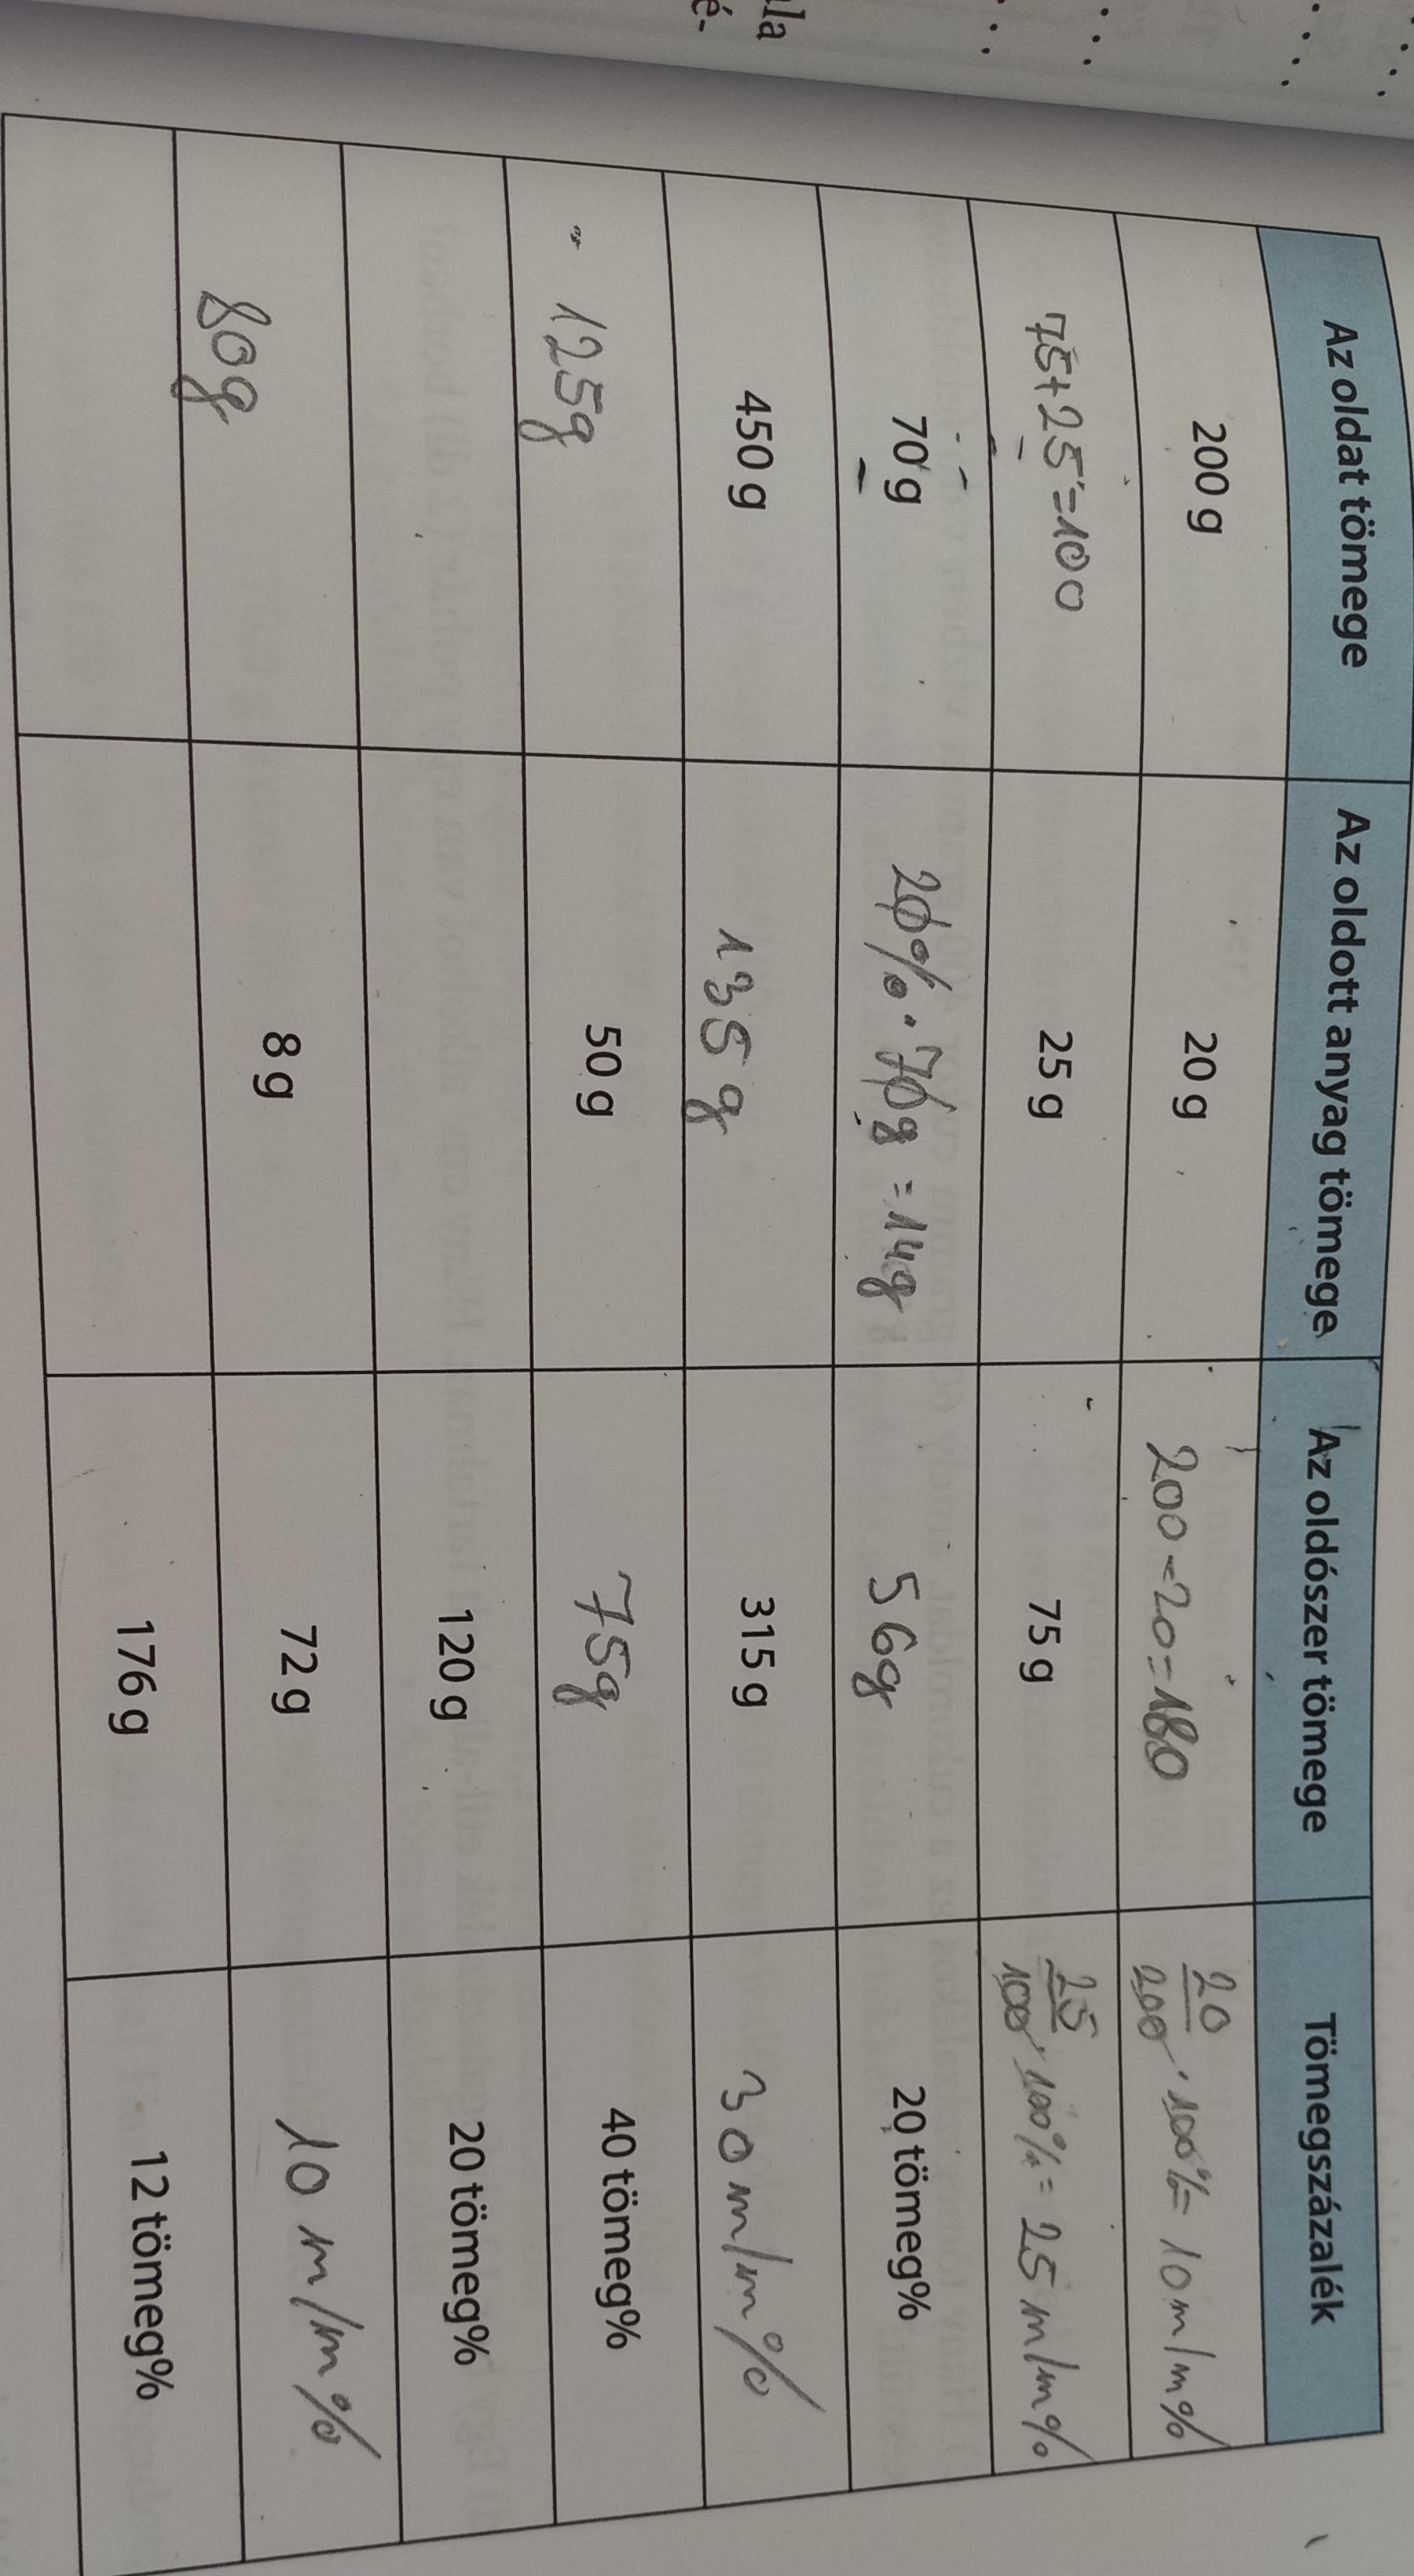 la
é-
Az oldat tömege Az oldott anyag tömege Az oldószer tömege Tömegszázalék
200 g 20 g 200-20=180 20/200 · 100%= 10 m/m%
75+25=100 25 g 75 g 25/100 · 100%= 25 m/m%
70 g 20% · 70g =14g 56g 20 tömeg%
450 g 135 g 315 g 30 m/m%
125g 50 g 75g 40 tömeg%
120 g 20 tömeg%
80g 8 g 72 g 10 m/m%
176 g 12 tömeg%